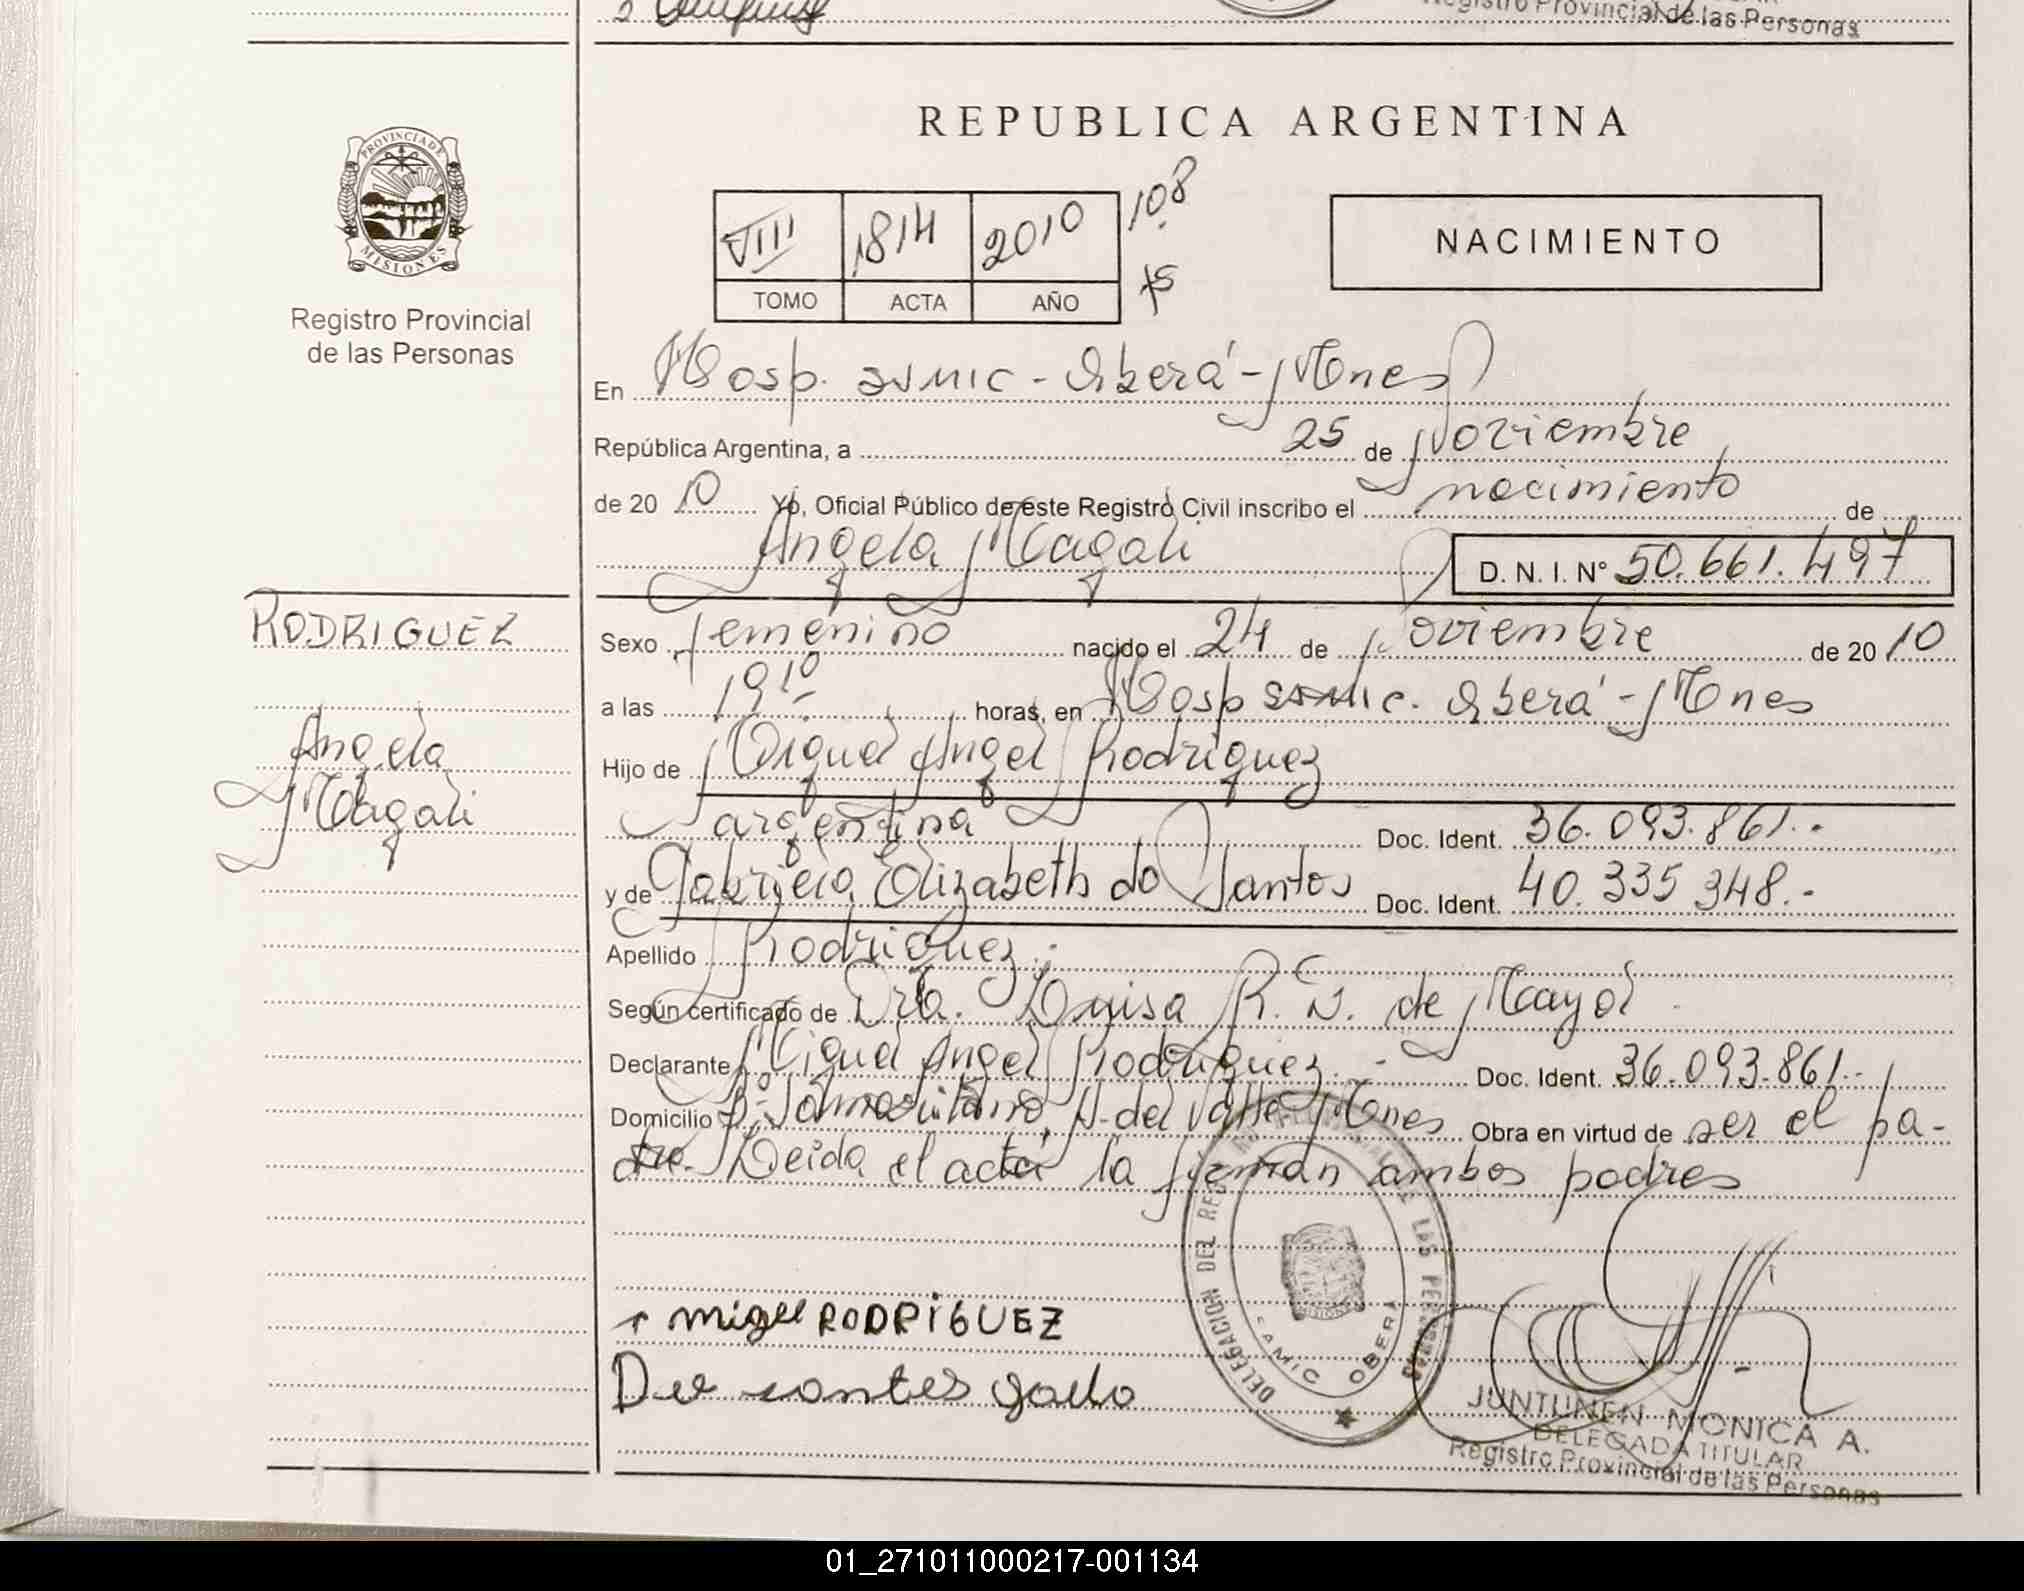 Registro Provincial de las Personas
REPUBLICA ARGENTINA
PROVINCIA DE
MISIONES
Registro Provincial
de las Personas
VIII 1814 2010 108
TOMO ACTA AÑO
NACIMIENTO
En Hosp. SAMIC - Oberá - Mnes
República Argentina, a 25 de Noviembre
de 20 10 Yo, Oficial Público de este Registro Civil inscribo el nacimiento de
Angela Magali D. N. I. Nº 50.661.497
RODRIGUEZ
Angela
Magali
Sexo femenino nacido el 24 de Noviembre de 20 10
a las 19 10 horas, en Hosp SAMIC. Oberá - Mnes
Hijo de Miguel Angel Rodriguez
argentina Doc. Ident. 36.093.861.-
y de Gabriela Elizabeth do Santos Doc. Ident. 40.335 348.-
Apellido Rodriguez.
Según certificado de Dra. Luisa R. N. de Mayol
Declarante Miguel Angel Rodriguez.- Doc. Ident. 36.093.861.-
Domicilio Bº. Samaritano, A. del Valle Mnes Obra en virtud de ser el pa-
dre. Leida el acta la firman ambos padres
miguel RODRIGUEZ
DELEGACION DEL REG. PROVINCIAL DE LAS PERSONAS
SAMIC OBERA
JUNTUNEN MONICA A.
DELEGADA TITULAR
Registro Provincial de las Personas
01_271011000217-001134